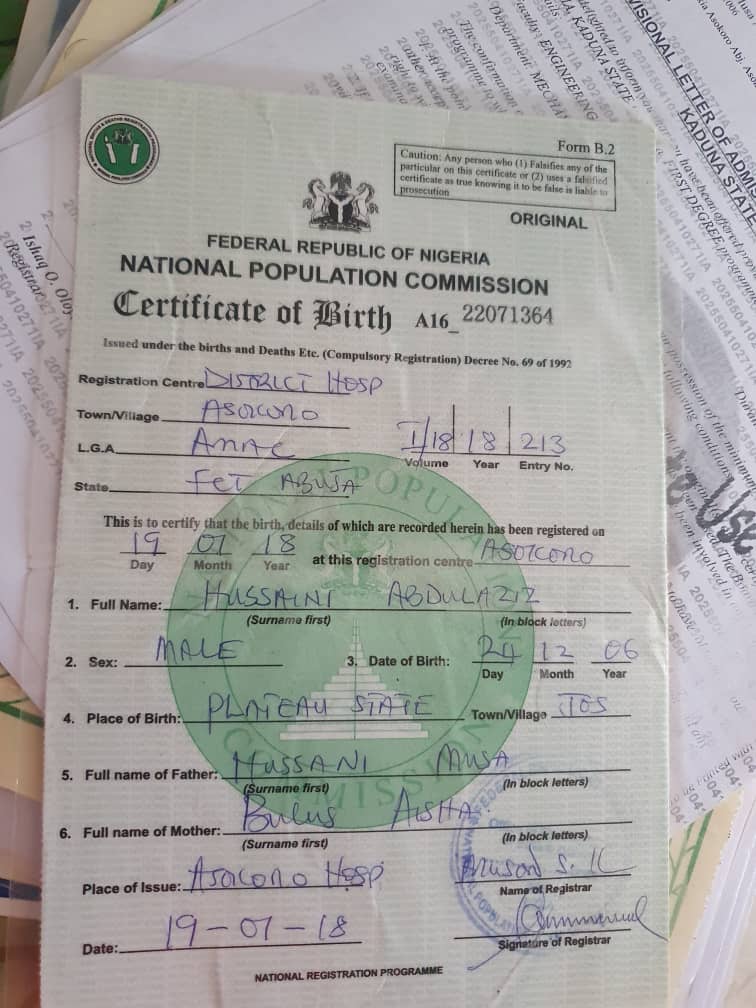 Form B.2
Caution: Any person who (1) Falsifies any of the
particular on this certificate or (2) uses a falsified
certificate as true knowing it to be false is liable to
prosecution
ORIGINAL
FEDERAL REPUBLIC OF NIGERIA
NATIONAL POPULATION COMMISSION
Certificate of Birth A16_ 22071364
Issued under the births and Deaths Etc. (Compulsory Registration) Decree No. 69 of 1992
Registration Centre DISTRICT HOSP
Town/Village ASOKORO
L.G.A. AMAC
1/18 18 213
Volume Year Entry No.
State FCT ABUJA
This is to certify that the birth, details of which are recorded herein has been registered on
19 07 18 at this registration centre ASOKORO
Day Month Year
1. Full Name: HUSSAINI ABDULAZIZ
(Surname first) (In block letters)
2. Sex: MALE 3. Date of Birth: 24 12 06
Day Month Year
4. Place of Birth: PLATEAU STATE Town/Village JOS
5. Full name of Father: HUSSANI MUSA
(Surname first) (In block letters)
6. Full name of Mother: Bulus AISHA
(Surname first) (In block letters)
Place of Issue: Asokoro Hosp
Name of Registrar
Date: 19-07-18
Signature of Registrar
NATIONAL REGISTRATION PROGRAMME
VISIONAL LETTER OF ADM
KADUNA STATE
FIRST DEGREE programme
Ishaq O. Oloy
Registrar